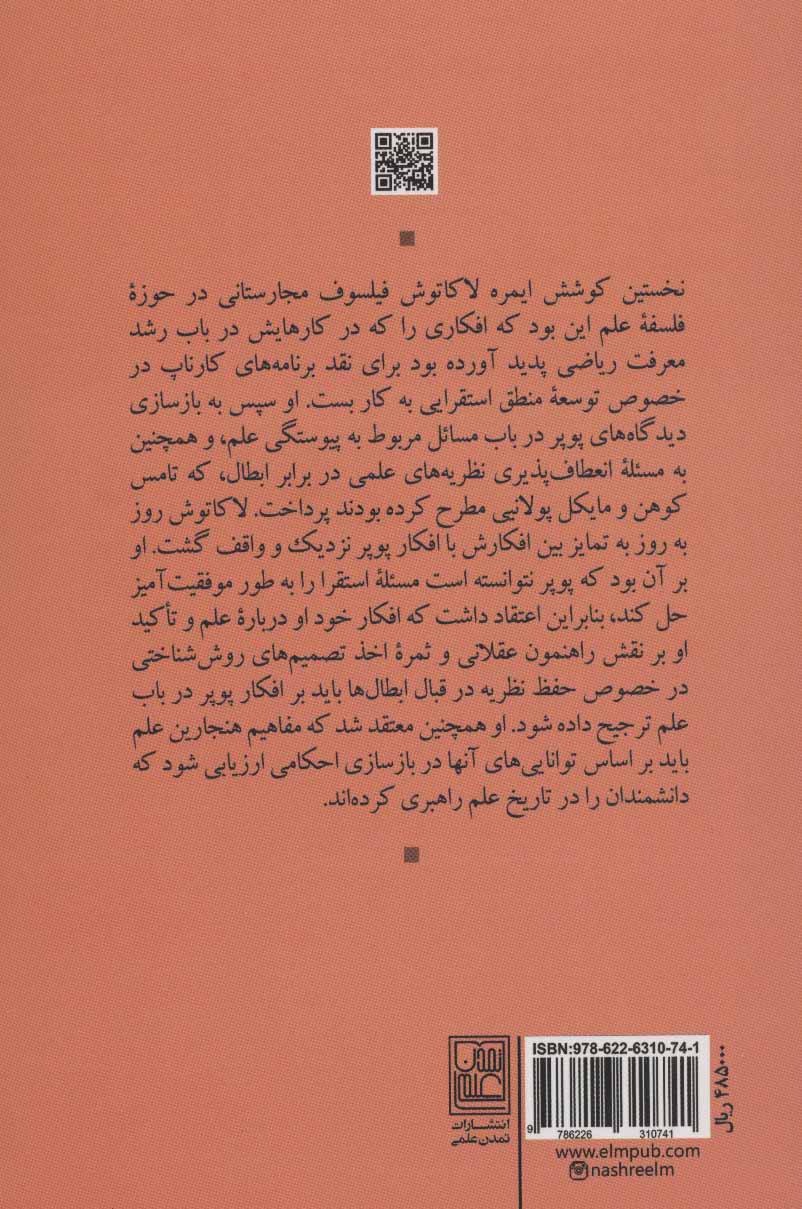 نخستین کوشش ایمره لاکاتوش فیلسوف مجارستانی در حوزهٔ
فلسفهٔ علم این بود که افکاری را که در کارهایش در باب رشد
معرفت ریاضی پدید آورده بود برای نقد برنامه‌های کارناپ در
خصوص توسعهٔ منطق استقرایی به کار بست. او سپس به بازسازی
دیدگاه‌های پوپر در باب مسائل مربوط به پیوستگی علم، و همچنین
به مسئلهٔ انعطاف‌پذیری نظریه‌های علمی در برابر ابطال، که تامس
کوهن و مایکل پولانیی مطرح کرده بودند پرداخت. لاکاتوش روز
به روز به تمایز بین افکارش با افکار پوپر نزدیک و واقف گشت. او
بر آن بود که پوپر نتوانسته است مسئلهٔ استقرا را به طور موفقیت‌آمیز
حل کند، بنابراین اعتقاد داشت که افکار خود او دربارهٔ علم و تأکید
او بر نقش راهنمون عقلانی و ثمرهٔ اخذ تصمیم‌های روش‌شناختی
در خصوص حفظ نظریه در قبال ابطال‌ها باید بر افکار پوپر در باب
علم ترجیح داده شود. او همچنین معتقد شد که مفاهیم هنجارین علم
باید بر اساس توانایی‌های آنها در بازسازی احکامی ارزیابی شود که
دانشمندان را در تاریخ علم راهبری کرده‌اند.
تمدن علمی
انتشارات
تمدن علمی
ISBN:978-622-6310-74-1
9 786226 310741
۴۸۵۰۰۰ ریال
www.elmpub.com
nashreelm